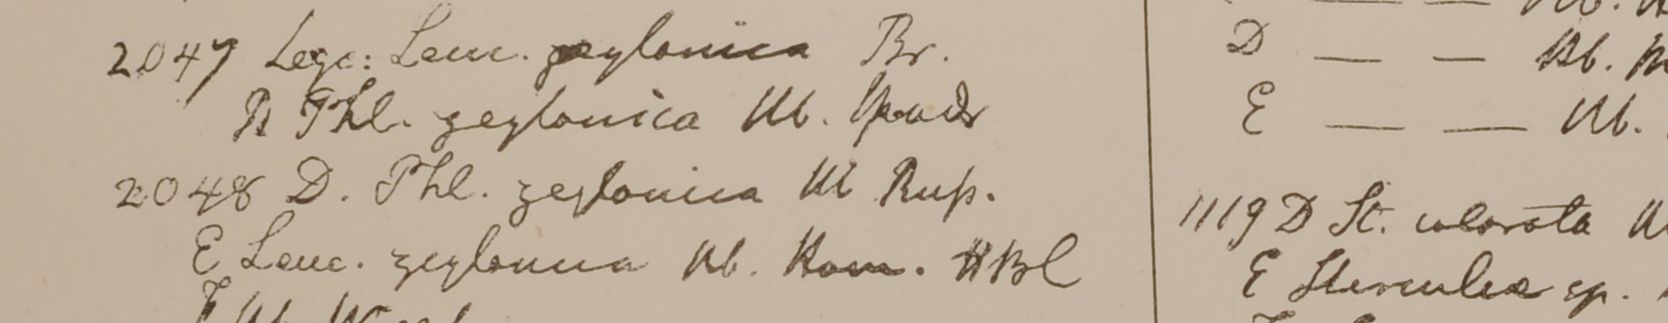 2047 Lege: Leuc. zeylonica Br.
B Phl. zeylonica Hb.
2048 D. Phl. zeylonica Hb Rusp.
E Leuc. zeylonica Hb. Ham. HBC
D — — Hb.
E — — Hb.
1119 D St. colorata
E Sterculea sp.